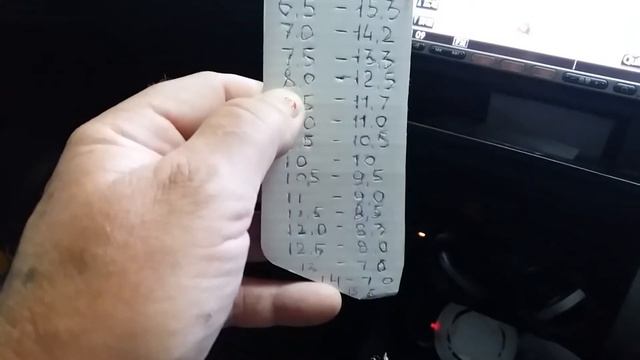 6,5 - 15,3
7,0 - 14,2
7,5 - 13,3
8,0 - 12,5
5 - 11,7
0 - 11,0
,5 - 10,5
10 - 10
10,5 - 9,5
11 - 9,0
11,5 - 8,5
12,0 - 8,3
12,5 - 8,0
13 - 7,6
14 - 7,0
09